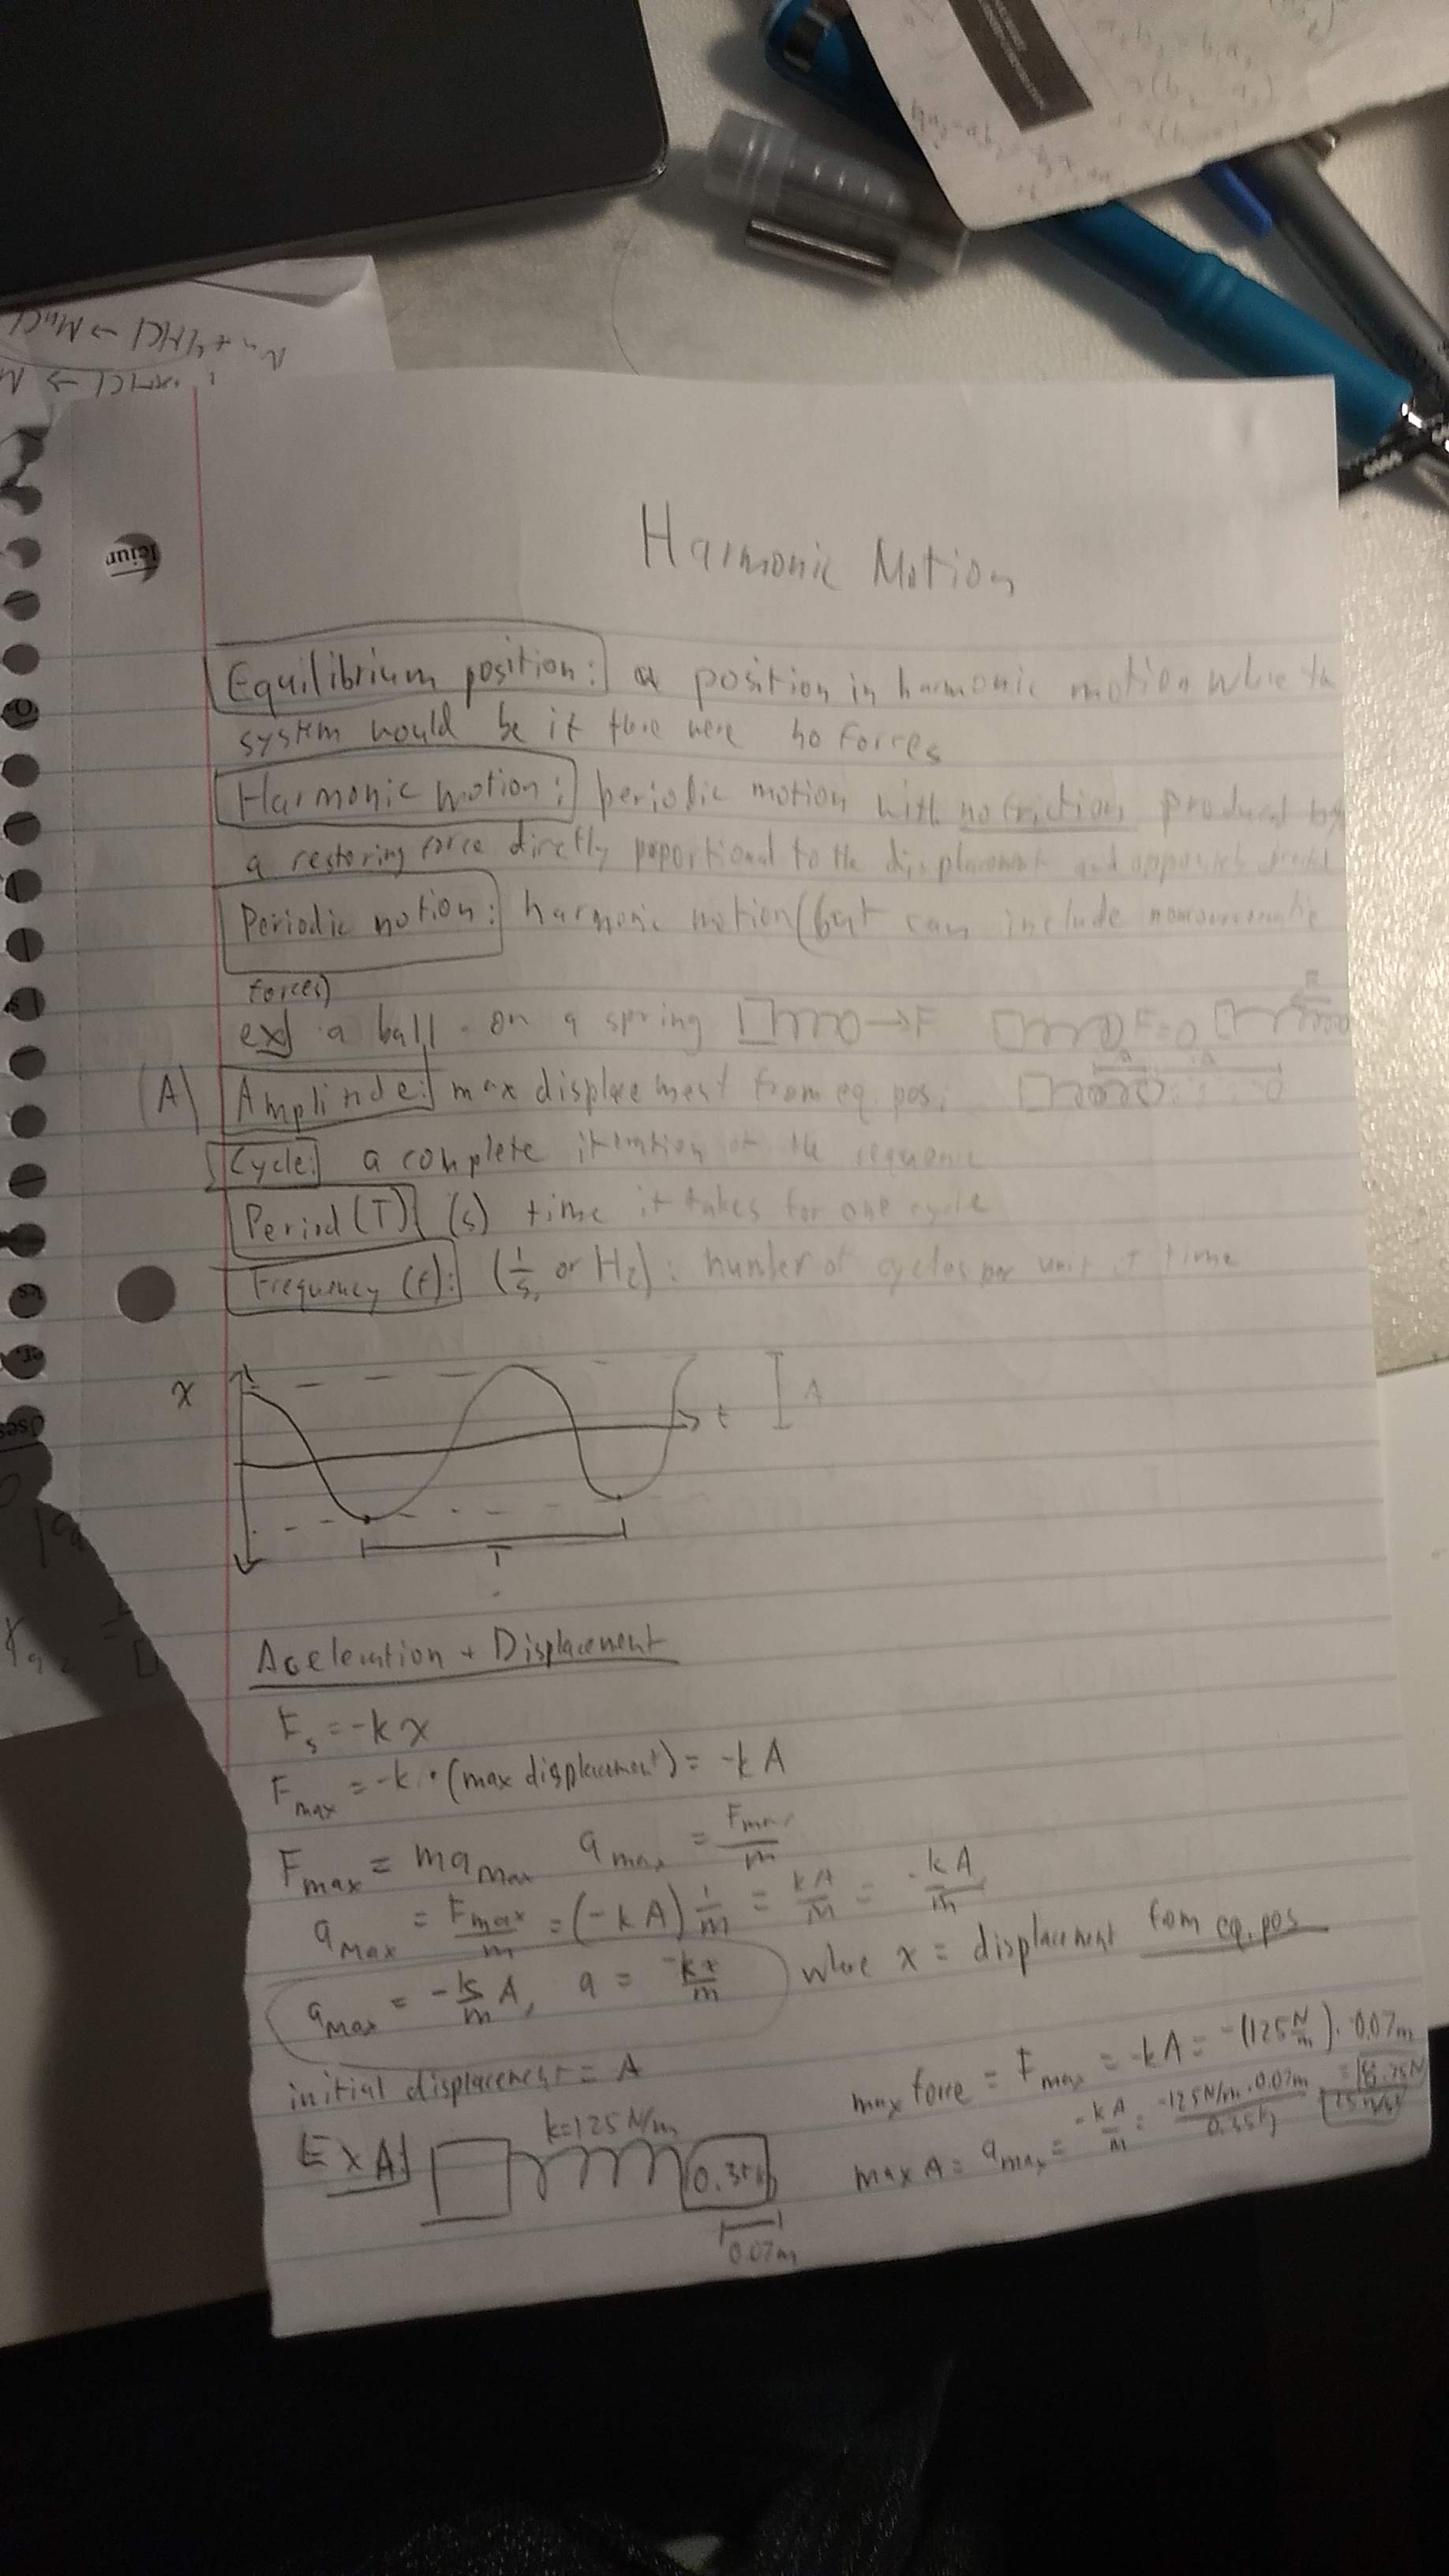 Harmonic Motion
Equilibrium position: a position in harmonic motion where th
system would be if there were no forces
Harmonic motion: periodic motion with no friction produced by
a restoring force directly poportional to the displacement and
Periodic motion: harmonic motion (but can include
forces)
ex] a ball on a spring → F F=0
(A) Amplinde: max displacement from eq. pos.
Cycle: a complete iteration of the sequence
Period (T) (s) time it takes for one cycle
Frequency (f): (1/s, or Hz): number of cycles per unit of time
x t A
T
Aceleration + Displacement
F_s = -kx
F_max = -k · (max displacement) = -kA
F_max = ma_max a_max = F_max/m
a_max = F_max/m = (-kA) 1/m = kA/m = -kA/m
a_max = -k/m A, a = -kx/m where x = displacement from eq. pos
initial displacement = A
max force = F_max = -kA = -(125 N/m) · 0.07m
Ex A] k=125 N/m
max A = a_max = -kA/m = -125N/m · 0.07m
0.07m